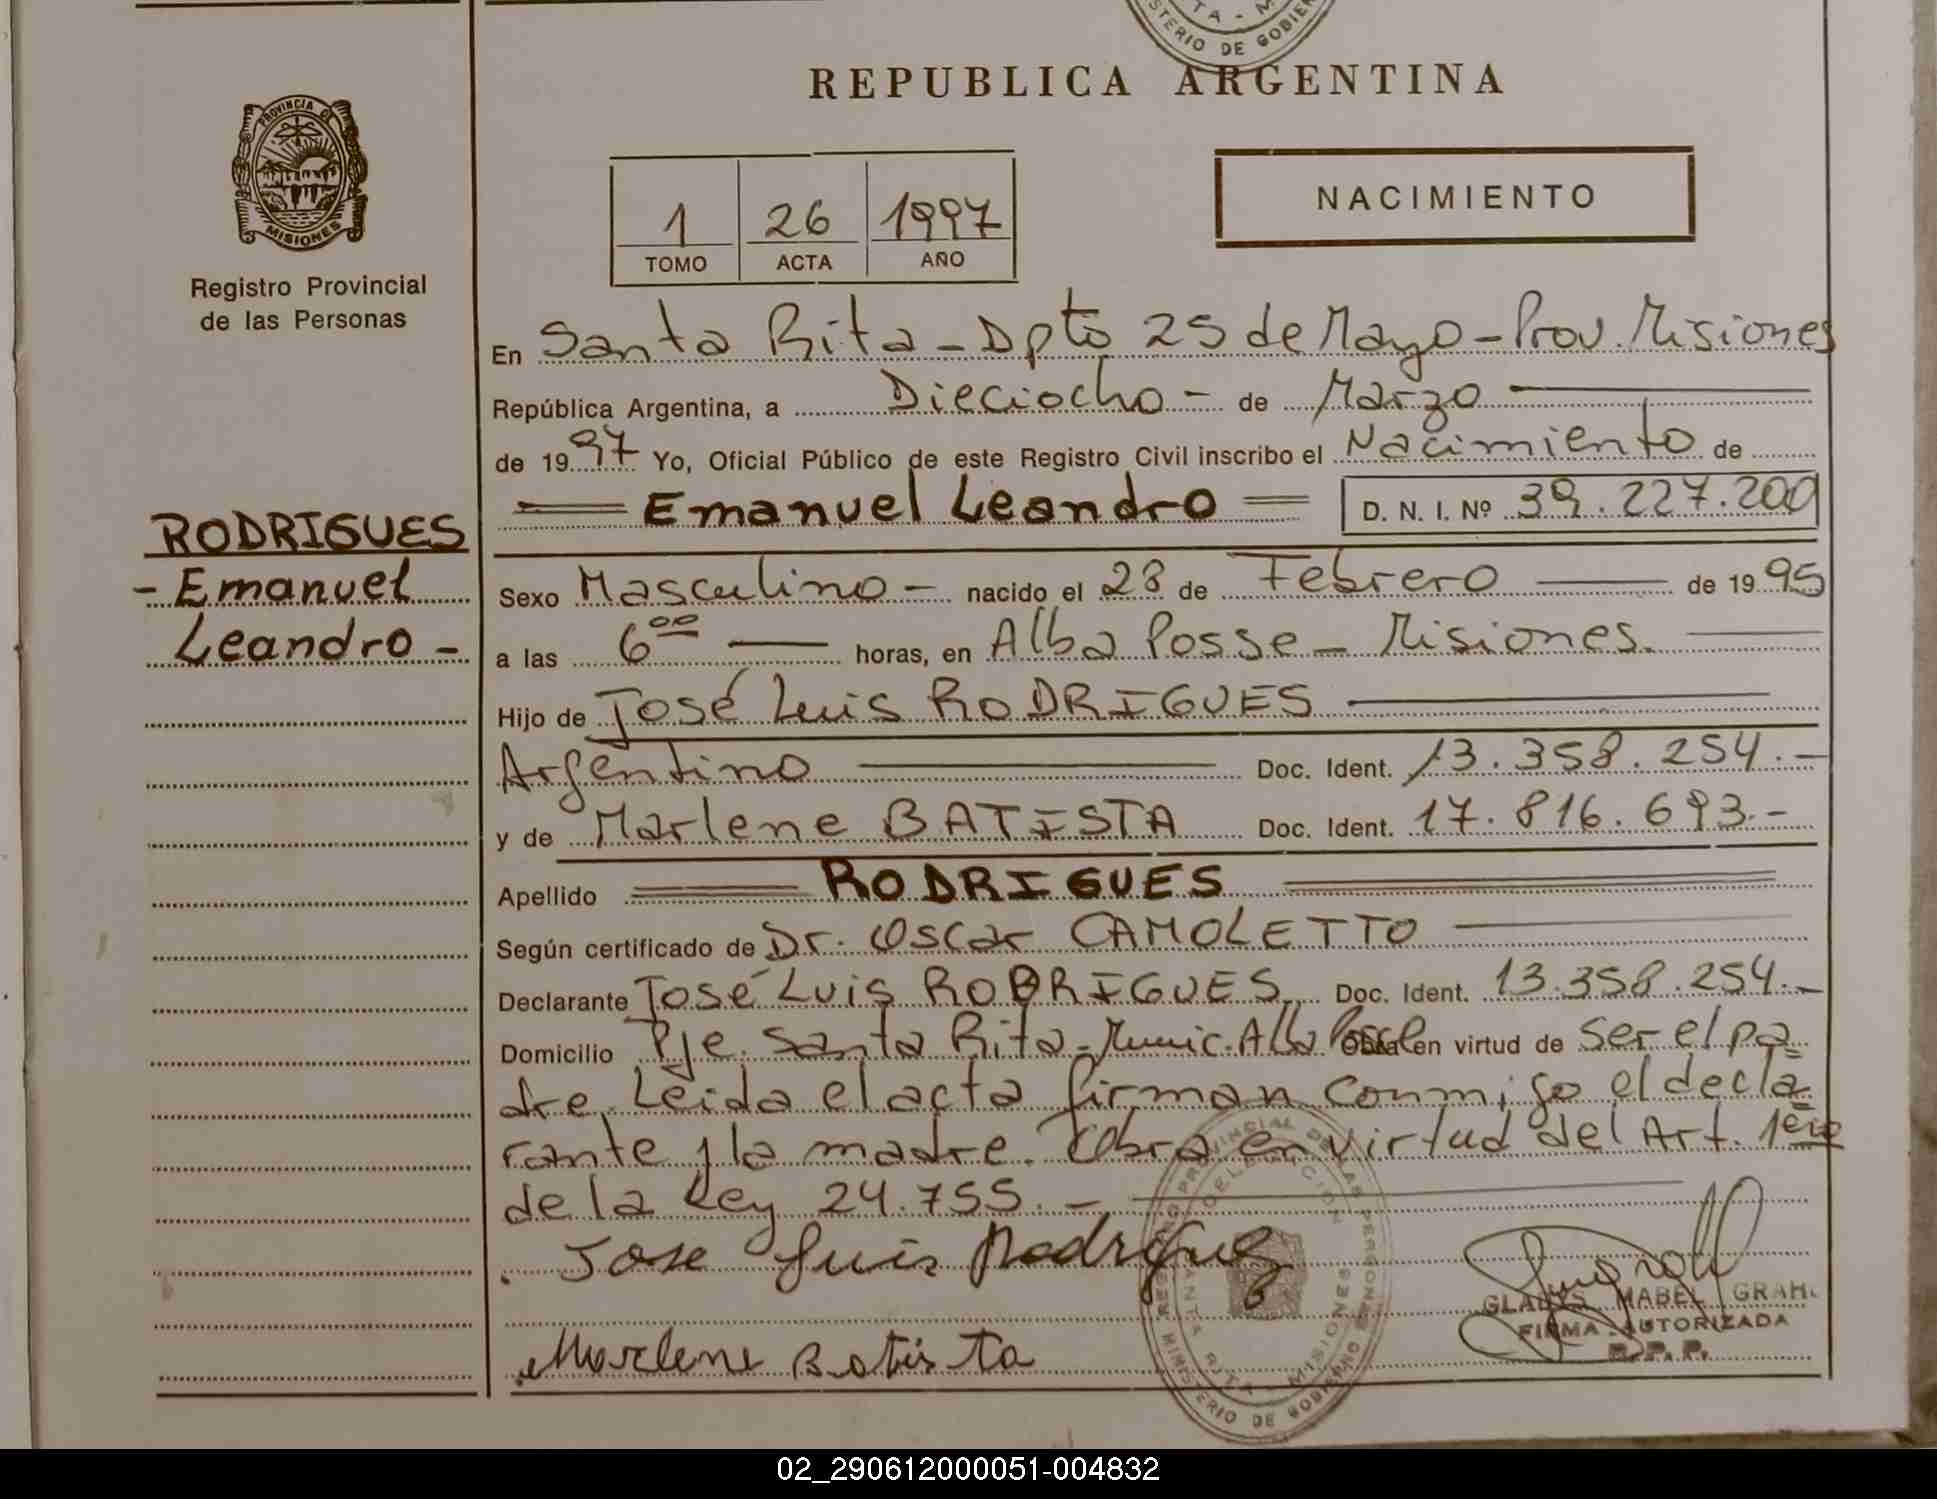 TA - M
STERIO DE GOBIER
REPUBLICA ARGENTINA
PROVINCIA DE
MISIONES
Registro Provincial
de las Personas
1 26 1997
TOMO ACTA AÑO
NACIMIENTO
En Santa Rita - Dpto 25 de Mayo - Prov. Misiones
República Argentina, a Dieciocho - de Marzo
de 1997 Yo, Oficial Público de este Registro Civil inscribo el Nacimiento de
Emanuel Leandro D. N. I. Nº 39.227.200
RODRIGUES
- Emanuel
Leandro -
Sexo Masculino - nacido el 28 de Febrero de 1995
a las 6 00 horas, en Alba Posse - Misiones.
Hijo de José Luis RODRIGUES
Argentino Doc. Ident. 13.358.254.-
y de Marlene BATISTA Doc. Ident. 17.816.693.-
Apellido RODRIGUES
Según certificado de Dr. Oscar CAMOLETTO
Declarante José Luis RODRIGUES Doc. Ident. 13.358.254.-
Domicilio Pje. Santa Rita - Munic. Alba Posse Obra en virtud de ser el pa
dre. Leida el acta firman conmigo el decla
rante y la madre. Obra en virtud del Art. 1ero
de la Ley 24.755. -
Jose Luis Rodriguez
Marlene Batista
REGISTRO PROVINCIAL DE LAS PERSONAS
DELEGACION
SANTA RITA - MISIONES
MINISTERIO DE GOBIERNO
GLADYS MABEL GRAHL
FIRMA AUTORIZADA
R.P.P.
02_290612000051-004832